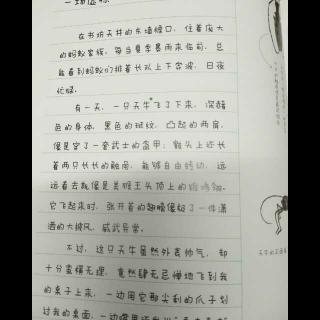 在书坊天井的东墙檐口，住着庞大的蚂蚁家族。每当夏季暴雨来临前，总能看到蚂蚁们排着长队上下穿梭，日夜忙碌。
有一天，一只天牛飞了下来，深褐色的身体，黑色的斑纹，凸起的两肩，像是穿了一套武士的盔甲；额头上还长着两只长长的触角，能够自由转动，远远看去就像是美猴王头顶上的
它飞起来时，张开着的翅膀像极了一件潇洒的大披风，威武异常。
不过，这只天牛虽然外表帅气，却十分蛮横无理，竟然肆无忌惮地飞到我的桌子上来，一边用它那尖利的爪子划过我的桌面，一边嘴里还发出